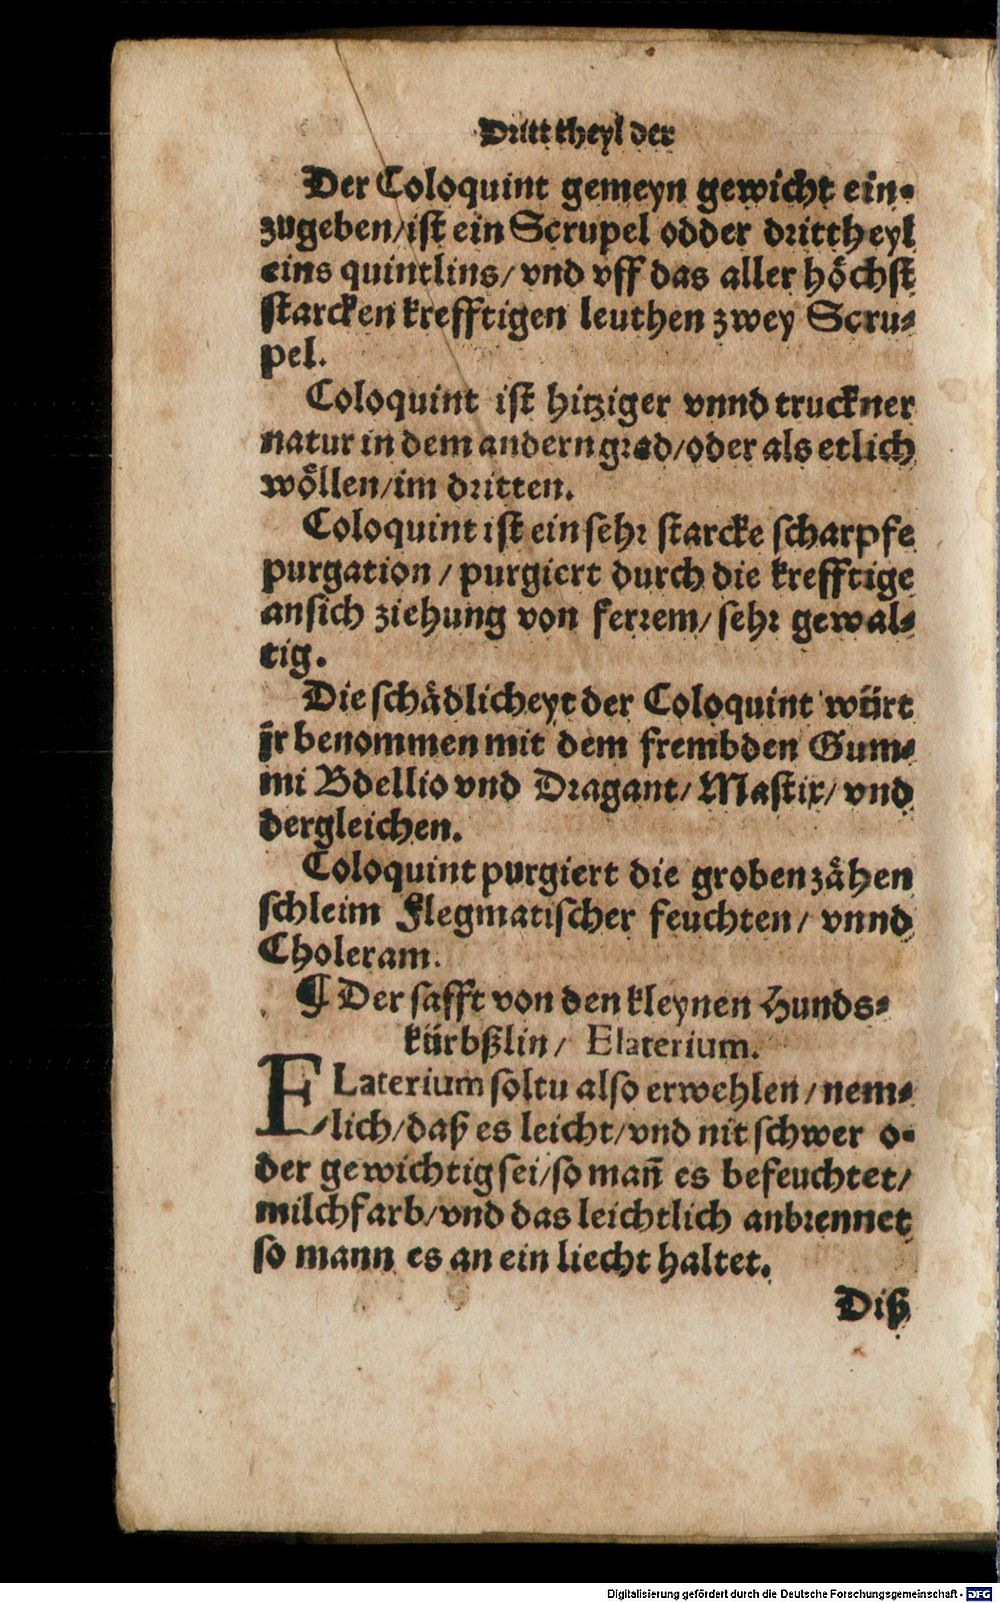 Dritt theyl der
Der Coloquint gemeyn gewicht ein-
zugeben/ist ein Scrupel odder drittheyl
eins quintlins/ vnd vff das aller höchst
starcken krefftigen leuthen zwey Scru-
pel.
Coloquint ist hitziger vnnd truckner
natur in dem andern grad/oder als etlich
wöllen/im dritten.
Coloquint ist ein sehr starcke scharpfe
purgation / purgiert durch die krefftige
an sich ziehung von ferrem/ sehr gewal-
tig.
Die schädlicheyt der Coloquint würt
jr benommen mit dem frembden Gum-
mi Bdellio vnd Dragant/ Mastix/ vnd
dergleichen.
Coloquint purgiert die groben zähen
schleim Flegmatischer feuchten/ vnnd
Choleram.
¶ Der safft von den kleynen Hunds-
kürbßlin/ Elaterium.
ELaterium soltu also erwehlen/nem-
lich/daß es leicht/vnd nit schwer o-
der gewichtig sei/so man̄ es befeuchtet/
milchfarb/vnd das leichtlich anbrennet
so mann es an ein liecht haltet.
Diß
Digitalisierung gefördert durch die Deutsche Forschungsgemeinschaft - DFG